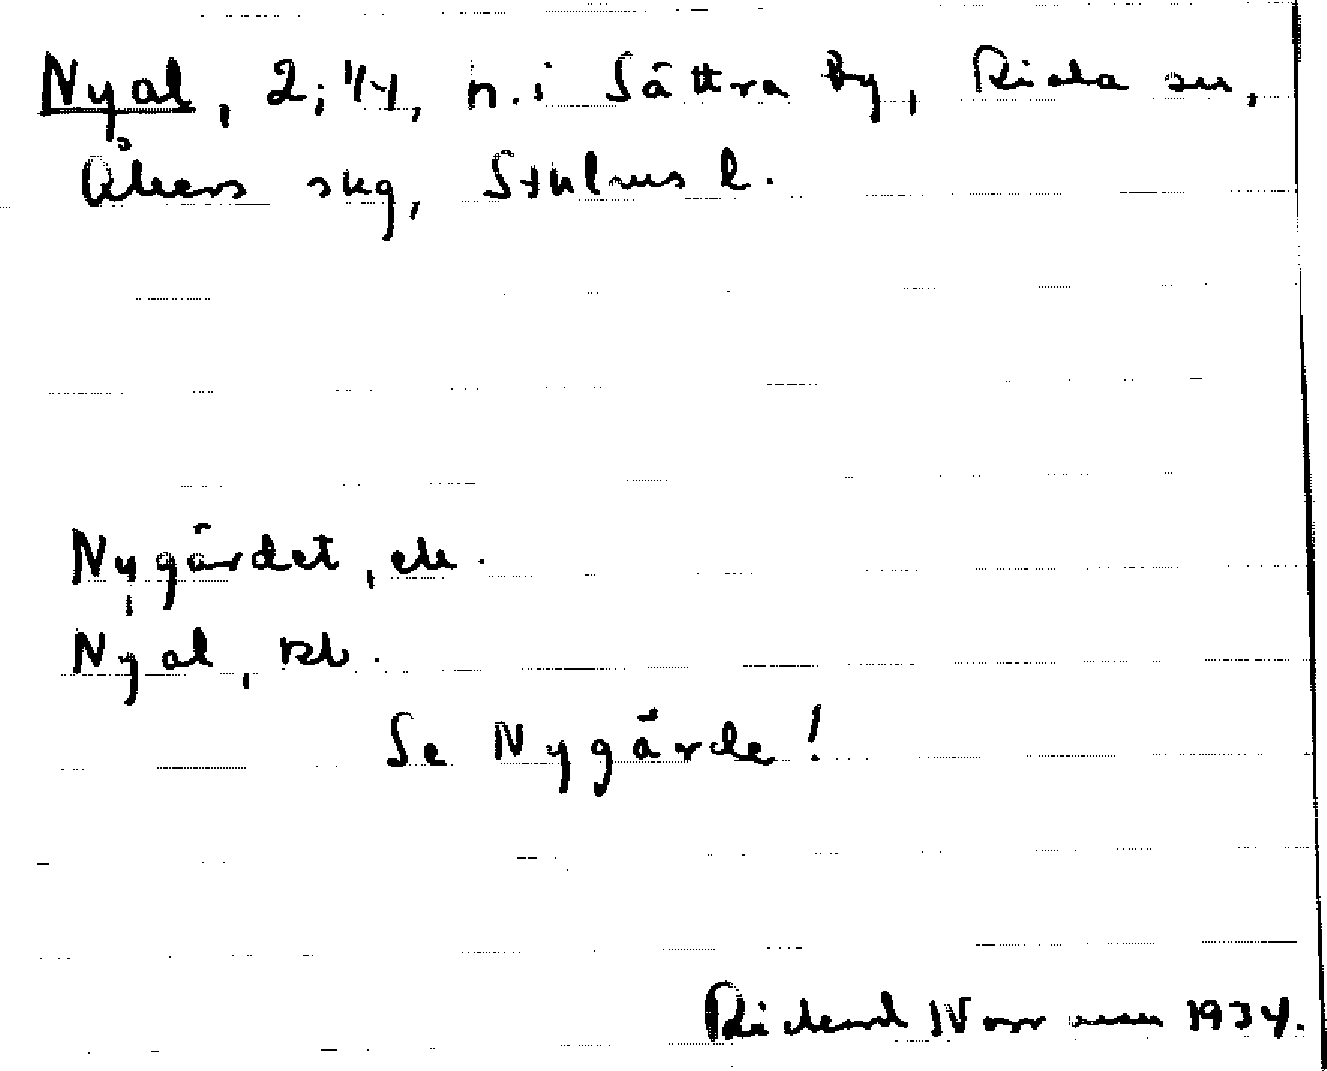 Nyal, 2; 1/4, n. i Sättra by, Riala sn,
Åkers skg, Sthlms l.
Nygärdet, ek.
Nyal, rkb.
Se Nygärde!
Rickard Norrman 1934.